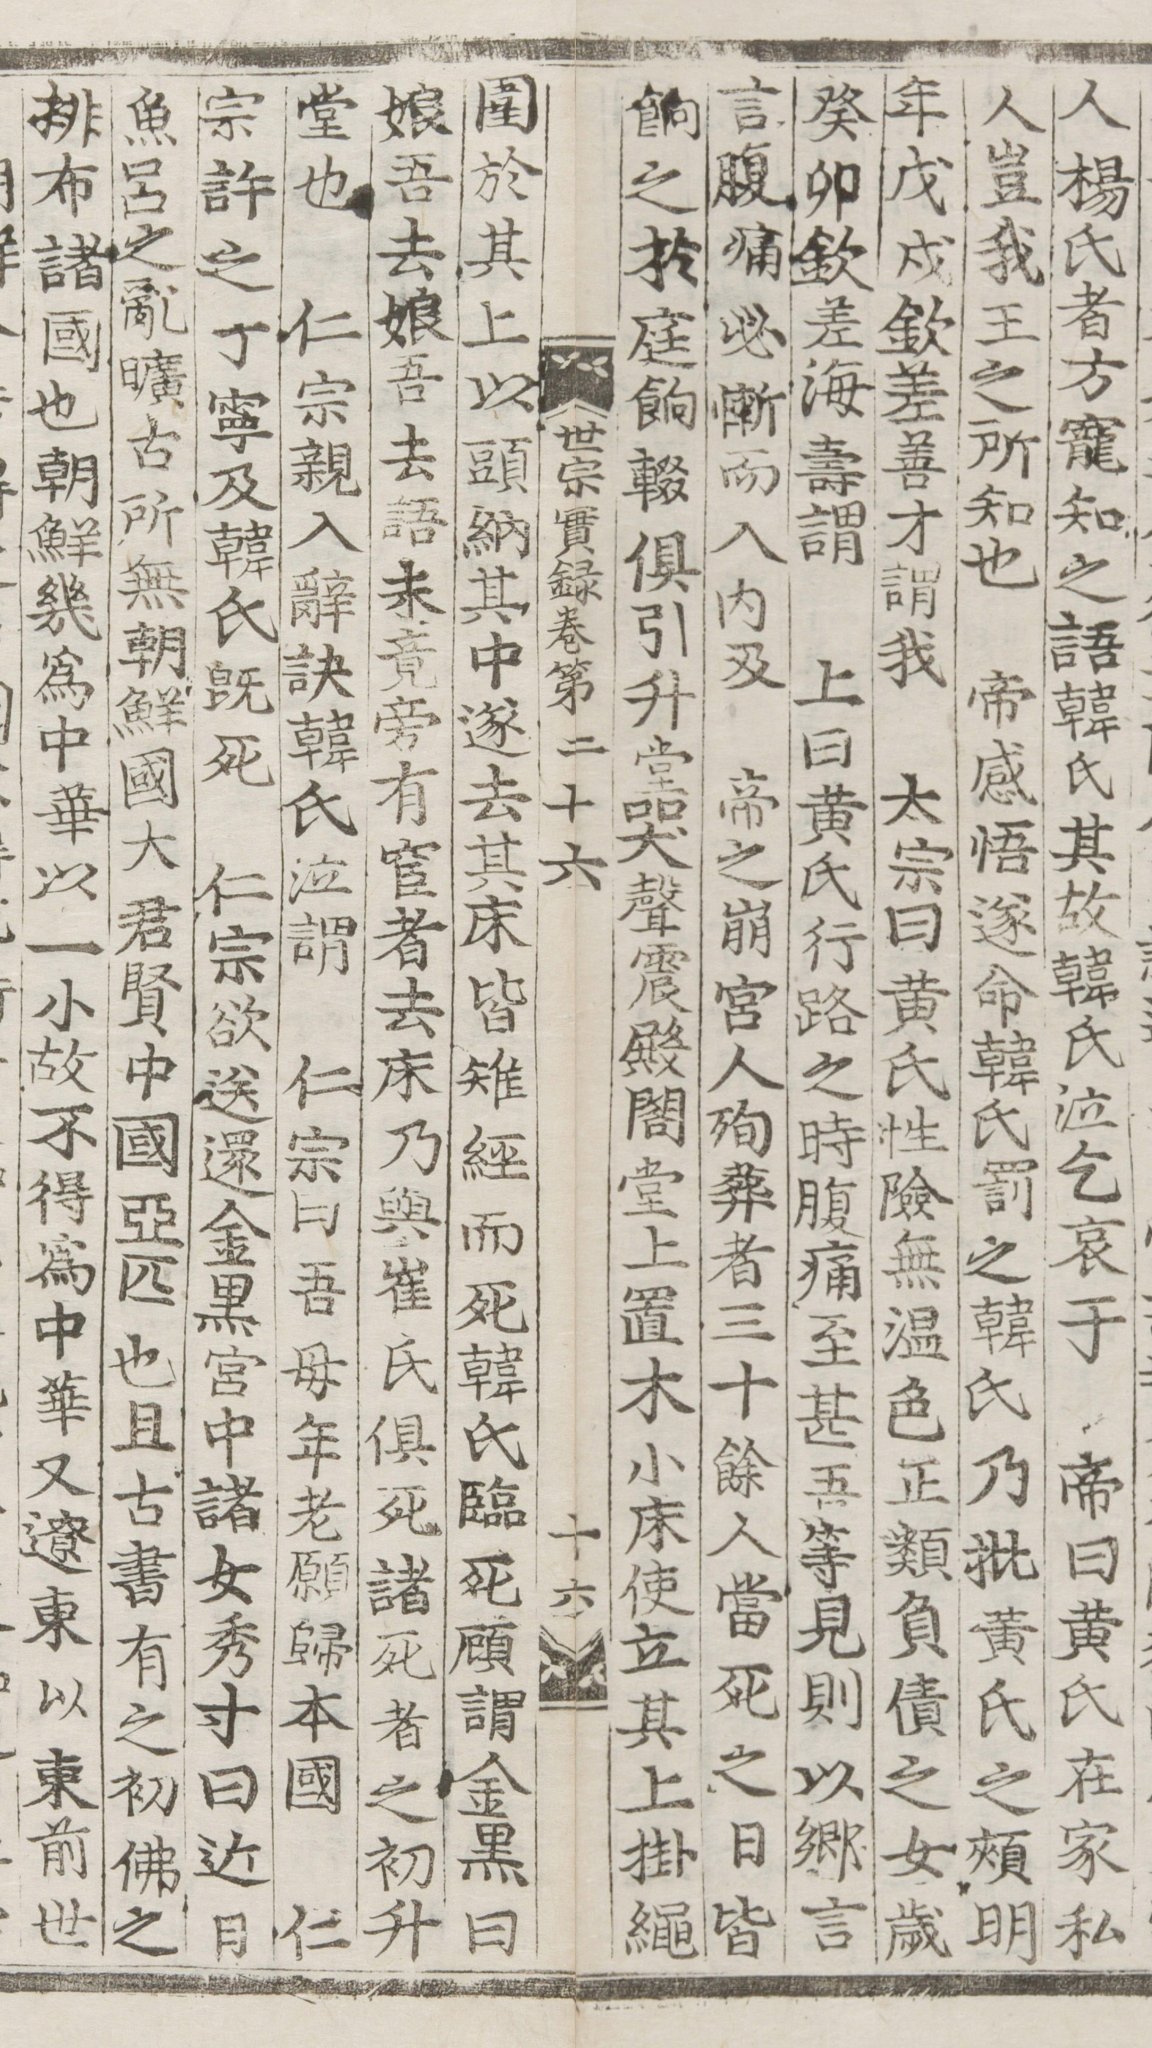 人楊氏者方寵知之語韓氏其故韓氏泣乞哀于 帝曰黄氏在家私
人豈我王之所知也 帝感悟遂命韓氏罰之韓氏乃批黄氏之頰明
年戊戌欽差善才謂我 太宗曰黄氏性險無温色正類負債之女歲
癸卯欽差海壽謂 上曰黄氏行路之時腹痛至甚吾等見則以鄉言
言腹痛必慚而入内及 帝之崩宮人殉葬者三十餘人當死之日皆
餉之於庭餉輟俱引升堂哭聲震殿閣堂上置木小床使立其上掛繩
世宗實録卷第二十六 十六
圍於其上以頭納其中遂去其床皆雉經而死韓氏臨死顧謂金黒曰
娘吾去娘吾去語未竟旁有宦者去床乃與崔氏俱死諸死者之初升
堂也 仁宗親入辭訣韓氏泣謂 仁宗曰吾母年老願歸本國 仁
宗許之丁寧及韓氏旣死 仁宗欲送還金黒宮中諸女秀才曰近日
魚呂之亂曠古所無朝鮮國大君賢中國亞匹也且古書有之初佛之
排布諸國也朝鮮幾爲中華以一小故不得爲中華又遼東以東前世